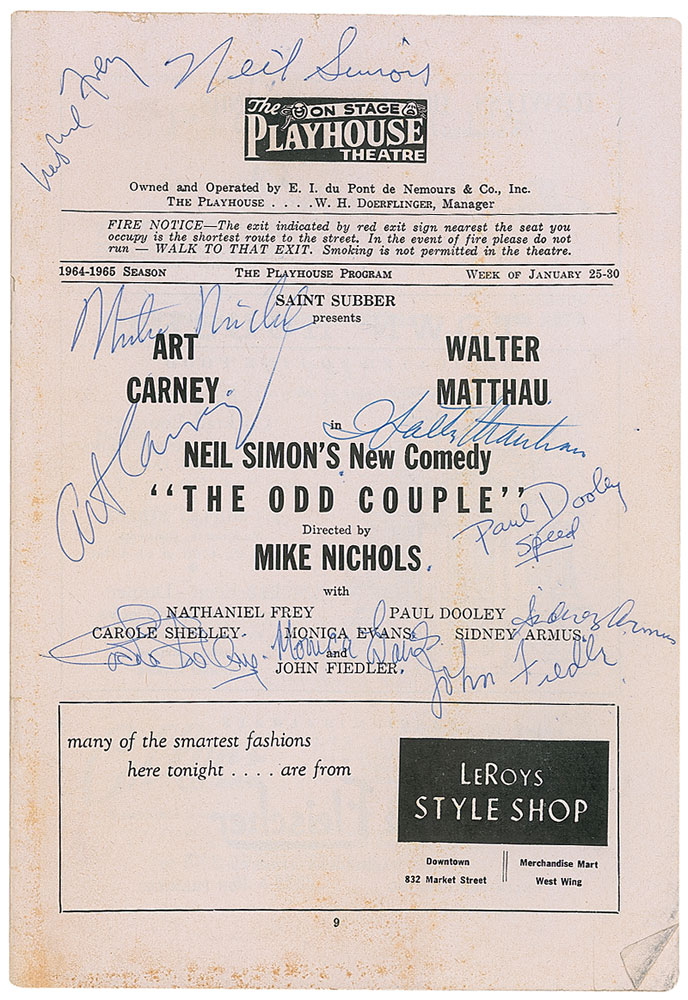 Nathaniel Frey
Neil Simon
The
ON STAGE
PLAYHOUSE
THEATRE
Owned and Operated by E. I. du Pont de Nemours & Co., Inc.
THE PLAYHOUSE . . . . W. H. DOERFLINGER, Manager
FIRE NOTICE—The exit indicated by red exit sign nearest the seat you
occupy is the shortest route to the street. In the event of fire please do not
run — WALK TO THAT EXIT. Smoking is not permitted in the theatre.
1964-1965 SEASON THE PLAYHOUSE PROGRAM WEEK OF JANUARY 25-30
SAINT SUBBER
presents
Mike Nichols
ART WALTER
CARNEY MATTHAU
in
Walter Matthau
Art Carney
NEIL SIMON'S New Comedy
"THE ODD COUPLE"
Paul Dooley
Speed
Directed by
MIKE NICHOLS
with
NATHANIEL FREY PAUL DOOLEY
Sidney Armus
CAROLE SHELLEY MONICA EVANS SIDNEY ARMUS
Carole Shelley Monica Evans
and
JOHN FIEDLER
John Fiedler
many of the smartest fashions
here tonight . . . . are from
LEROYS
STYLE SHOP
Downtown Merchandise Mart
832 Market Street West Wing
9